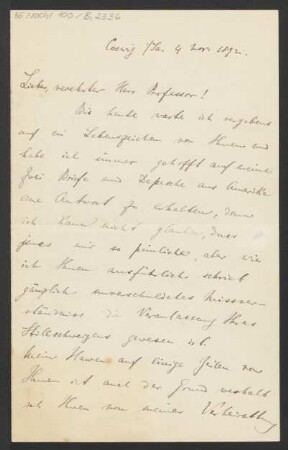 Coswig /Sa. 4 Nov. 1892.
Lieber, verehrter Herr Professor!
Bis heute warte ich vergebens
auf ein Lebenszeichen von Ihnen und
habe ich immer gehofft auf meine
drei Briefe und Depesche aus Amerika
eine Antwort zu erhalten, denn
ich kann nicht glauben, dass
jenes mir so peinliche, aber wie
ich Ihnen ausführlich schrieb
gänzlich unverschuldetes Missver-
ständniss die Veranlassung Ihres
Stillschweigens gewesen ist.
Harren auf einige Zeilen von
Ihnen ist auch der Grund weshalb
ich Ihnen von meiner Verheirathung